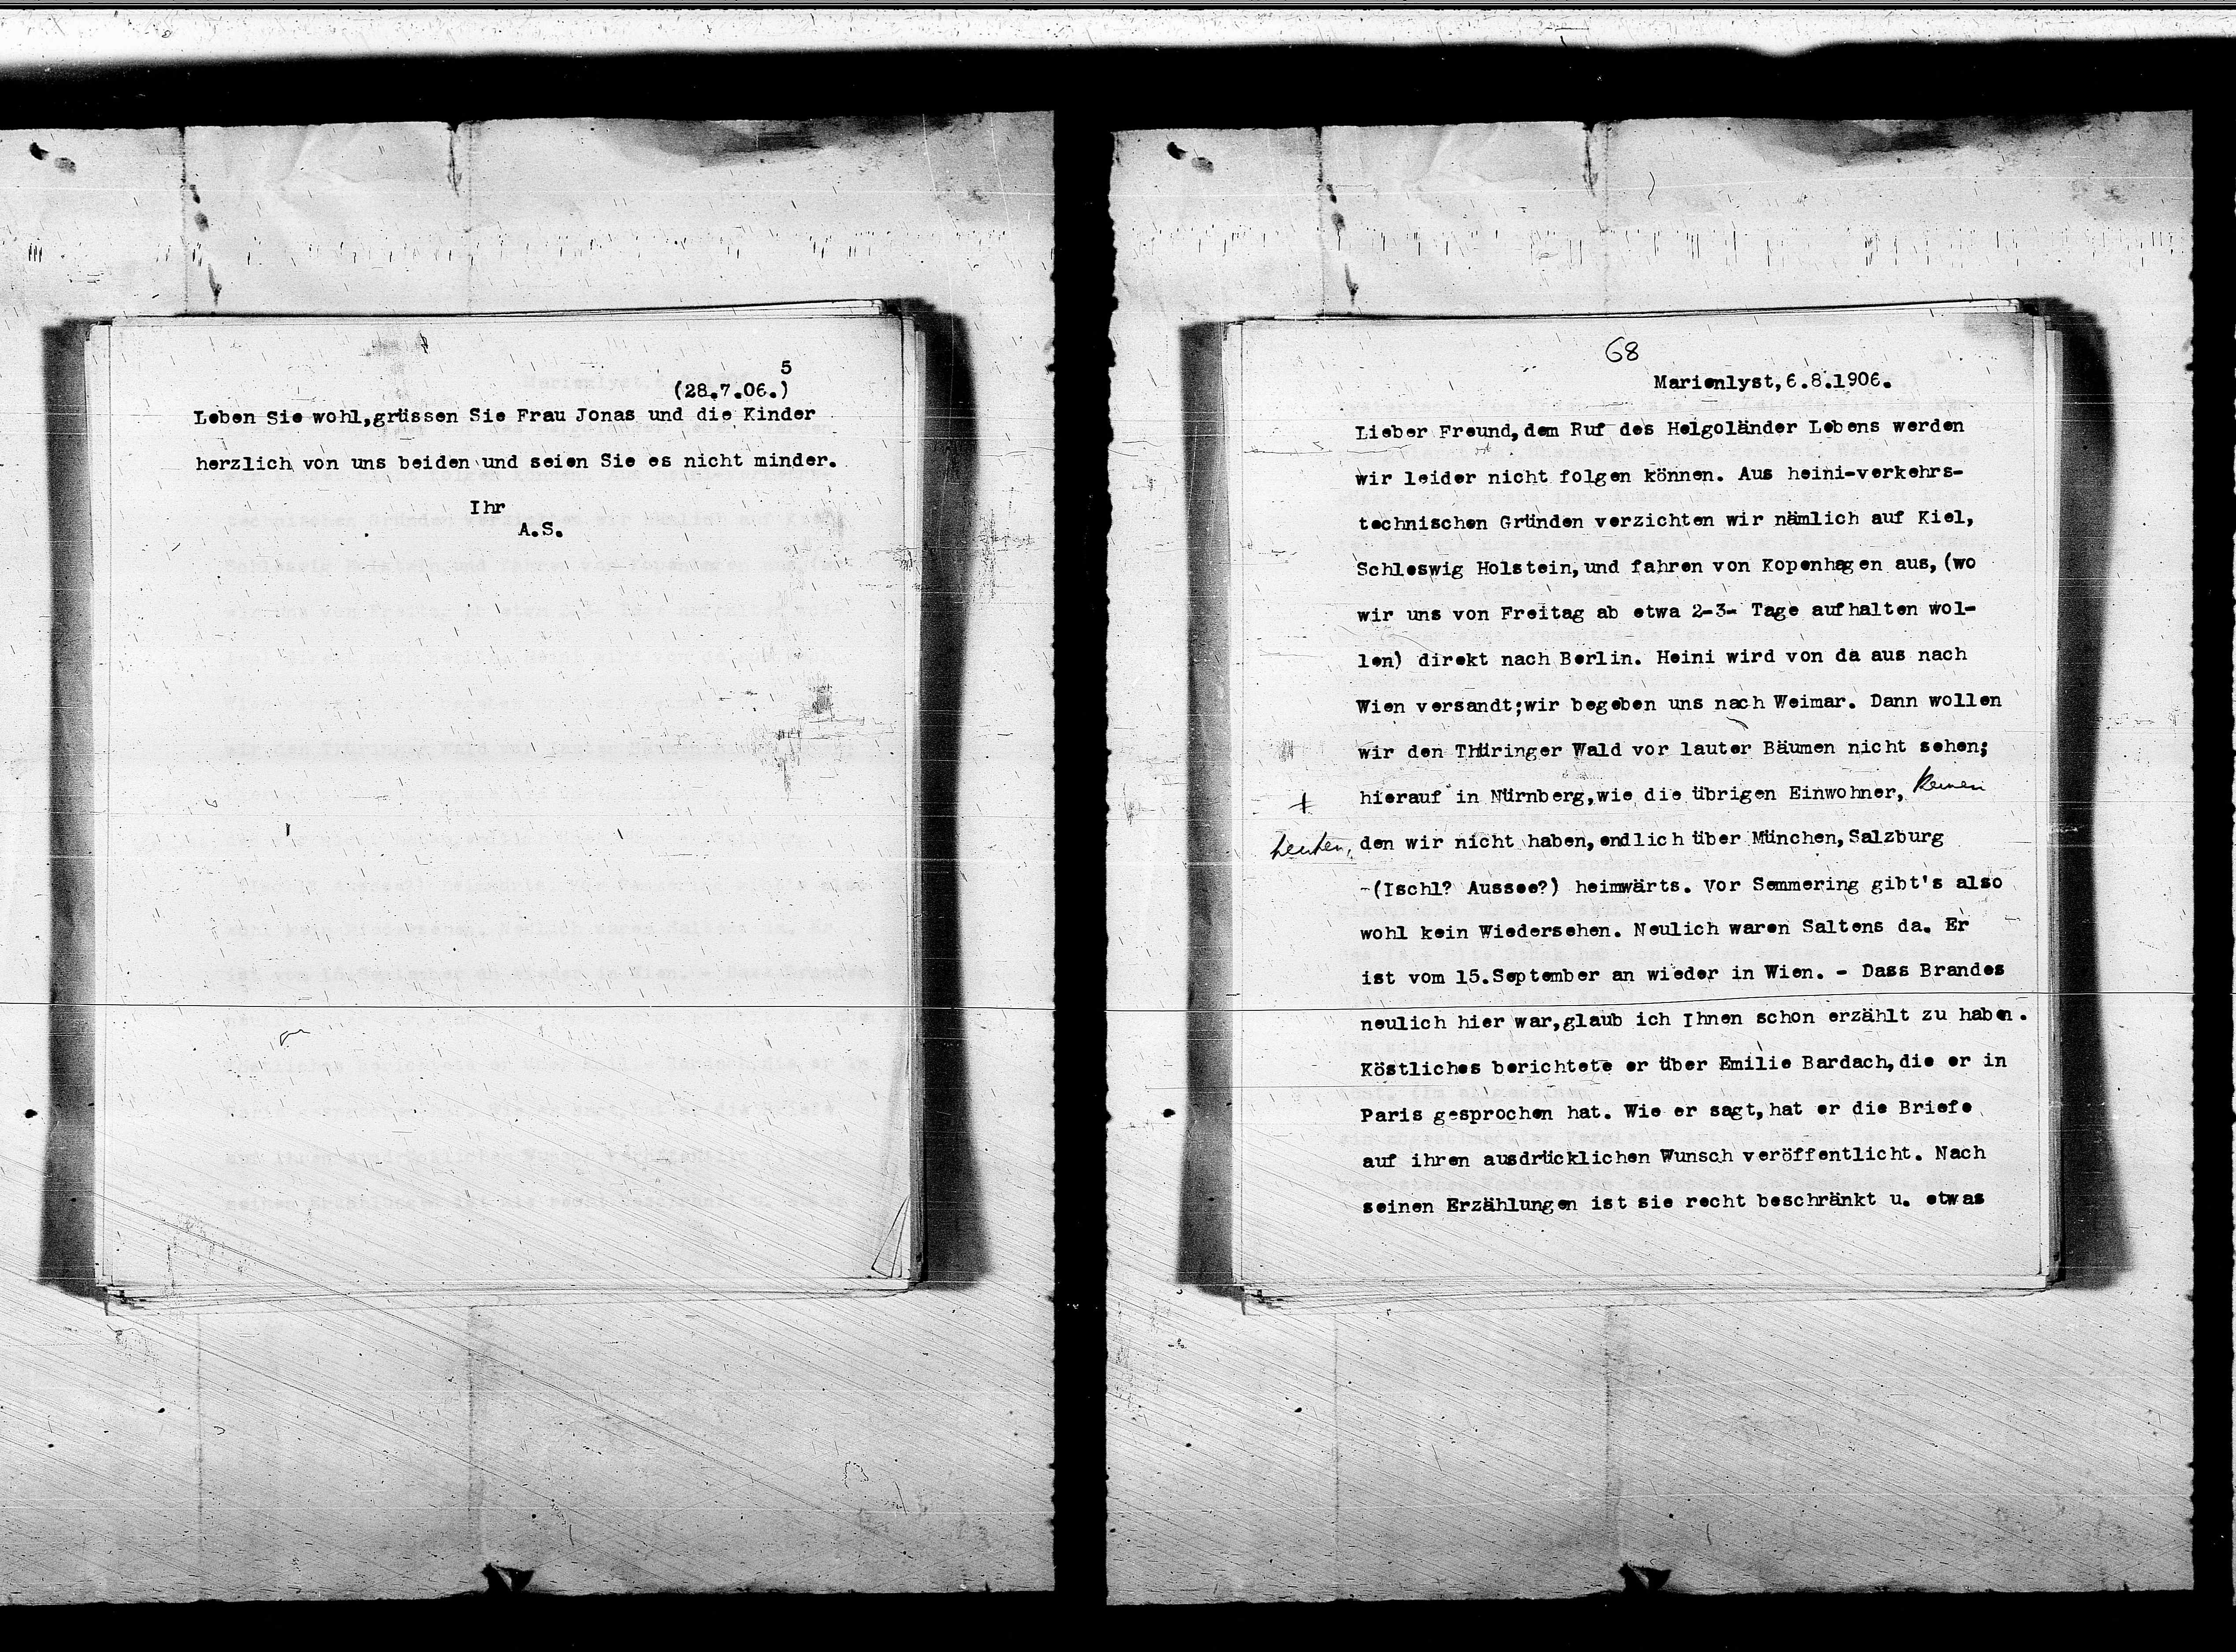 5
(28.7.06.)
Leben Sie wohl,grüssen Sie Frau Jonas und die Kinder
herzlich von uns beiden und seien Sie es nicht minder.
Ihr
A.S.
68
Marienlyst,6.8.1906.
Lieber Freund,dem Ruf des Helgoländer Lebens werden
wir leider nicht folgen können. Aus heini-verkehrs-
technischen Gründen verzichten wir nämlich auf Kiel,
Schleswig Holstein,und fahren von Kopenhagen aus,(wo
wir uns von Freitag ab etwa 2-3- Tage aufhalten wol-
len) direkt nach Berlin. Heini wird von da aus nach
Wien versandt;wir begeben uns nach Weimar. Dann wollen
wir den Thüringer Wald vor lauter Bäumen nicht sehen;
hierauf in Nürnberg,wie die übrigen Einwohner, keinen
henken, den wir nicht haben,endlich über München,Salzburg
-(Ischl? Aussee?) heimwärts. Vor Semmering gibt's also
wohl kein Wiedersehen. Neulich waren Saltens da. Er
ist vom 15.September an wieder in Wien. - Dass Brandes
neulich hier war,glaub ich Ihnen schon erzählt zu haben.
Köstliches berichtete er über Emilie Bardach,die er in
Paris gesprochen hat. Wie er sagt,hat er die Briefe
auf ihren ausdrücklichen Wunsch veröffentlicht. Nach
seinen Erzählungen ist sie recht beschränkt u. etwas